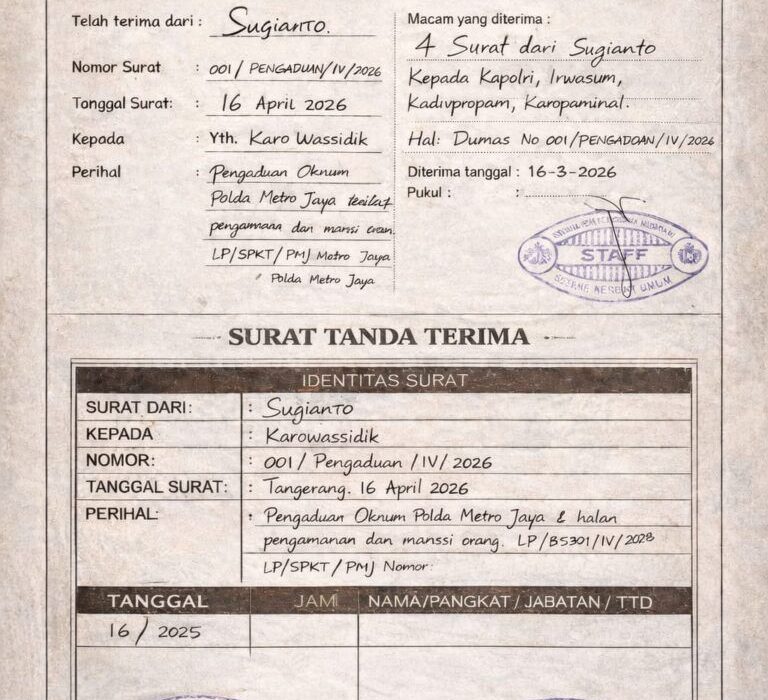 Telah terima dari : Sugianto.
Nomor Surat : 001/ PENGADUAN/IV/2026
Tanggal Surat: : 16 April 2026
Kepada : Yth. Karo Wassidik
Perihal : Pengaduan Oknum
Polda Metro Jaya
pengamana dan mansi
LP/SPKT/PMJ Motro Jaya
Polda Metro Jaya
Macam yang diterima :
4 Surat dari Sugianto
Kepada Kapolri, Irwasum,
Kadivpropam, Karopaminal.
Hal: Dumas No 001/PENGADOAN/IV/2026
Diterima tanggal : 16-3-2026
Pukul : :
STAFF
UMUM
SURAT TANDA TERIMA
IDENTITAS SURAT
SURAT DARI: : Sugianto
KEPADA : Karowassidik
NOMOR: : 001/ Pengaduan /IV/ 2026
TANGGAL SURAT: : Tangerang. 16 April 2026
PERIHAL: : Pengaduan Oknum Polda Metro Jaya & halan
pengamanan dan manssi orang. LP/B5301/IV/2028
LP/SPKT/PMJ Nomor:
TANGGAL JAMI NAMA/PANGKAT / JABATAN / TTD
16/ 2025